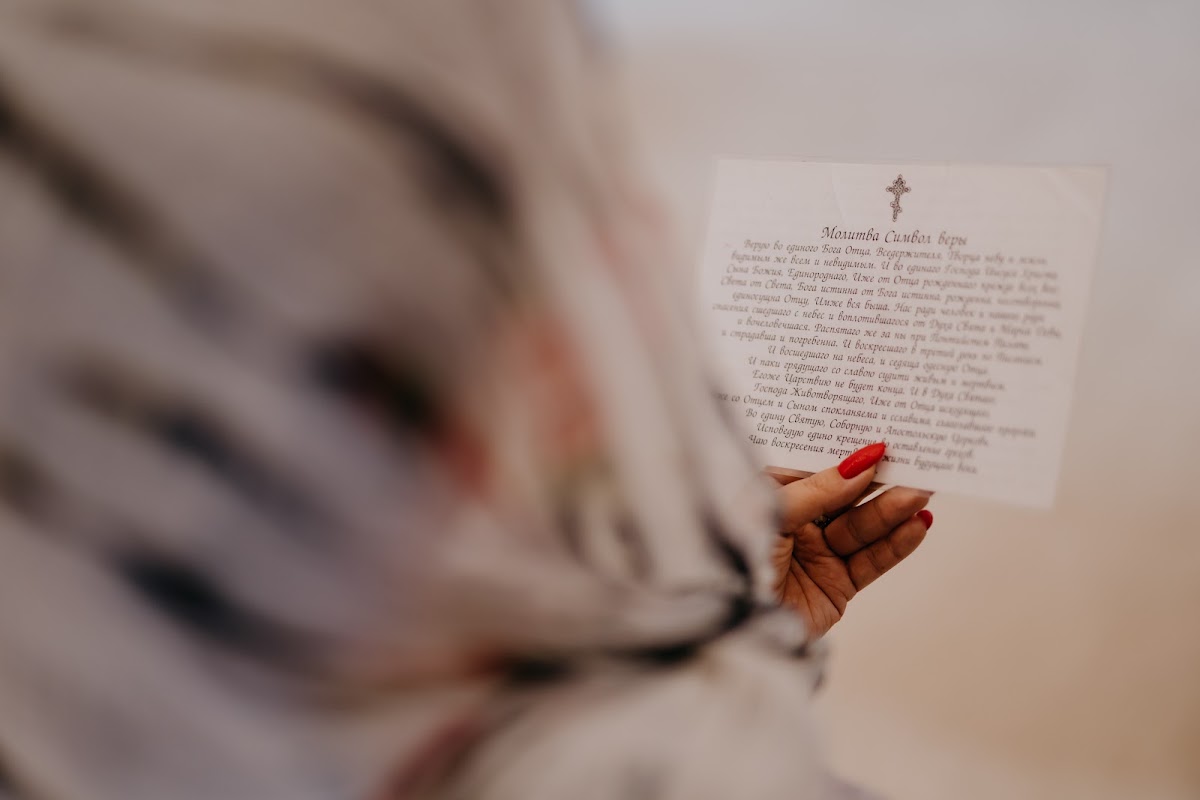 Молитва Символ веры
Верую во единого Бога Отца, Вседержителя, Творца небу и земли,
видимым же всем и невидимым. И во единаго Господа Иисуса Христа,
Сына Божия, Единороднаго, Иже от Отца рожденнаго прежде всех век:
Света от Света, Бога истинна от Бога истинна, рожденна, несотворенна,
единосущна Отцу, Имже вся быша. Нас ради человек и нашего ради
спасения сшедшаго с небес и воплотившагося от Духа Свята и Марии Девы,
и вочеловечшася. Распятаго же за ны при Понтийстем Пилате,
и страдавша и погребенна. И воскресшаго в третий день по Писанием.
И восшедшаго на небеса, и седяща одесную Отца.
И паки грядущаго со славою судити живым и мертвым.
Егоже Царствию не будет конца. И в Духа Святаго,
Господа Животворящаго, Иже от Отца исходящаго,
же со Отцем и Сыном спокланяема и сславима, глаголавшаго пророки.
Во едину Святую, Соборную и Апостольскую Церковь.
Исповедую едино крещение во оставление грехов.
Чаю воскресения жизни будущаго века.